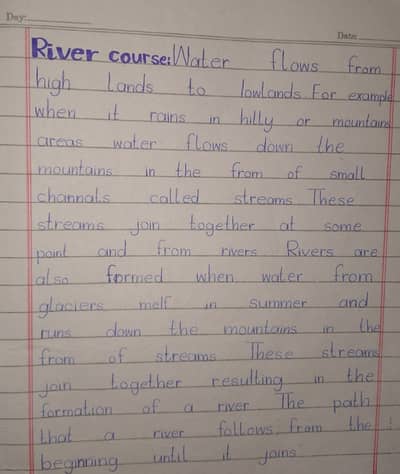 Day:
Date:
River course: Water flows from
high lands to lowlands. For example
when it rains in hilly or mountains
areas water flows down the
mountains in the from of small
channals called streams These
streams join together at some
point and from rivers Rivers are
also formed when water from
glaciers melf in summer and
runs down the mountains in the
from of streams These streams
join together resulting in the
formation of a river The path
that a river follows from the
beginning until it joins